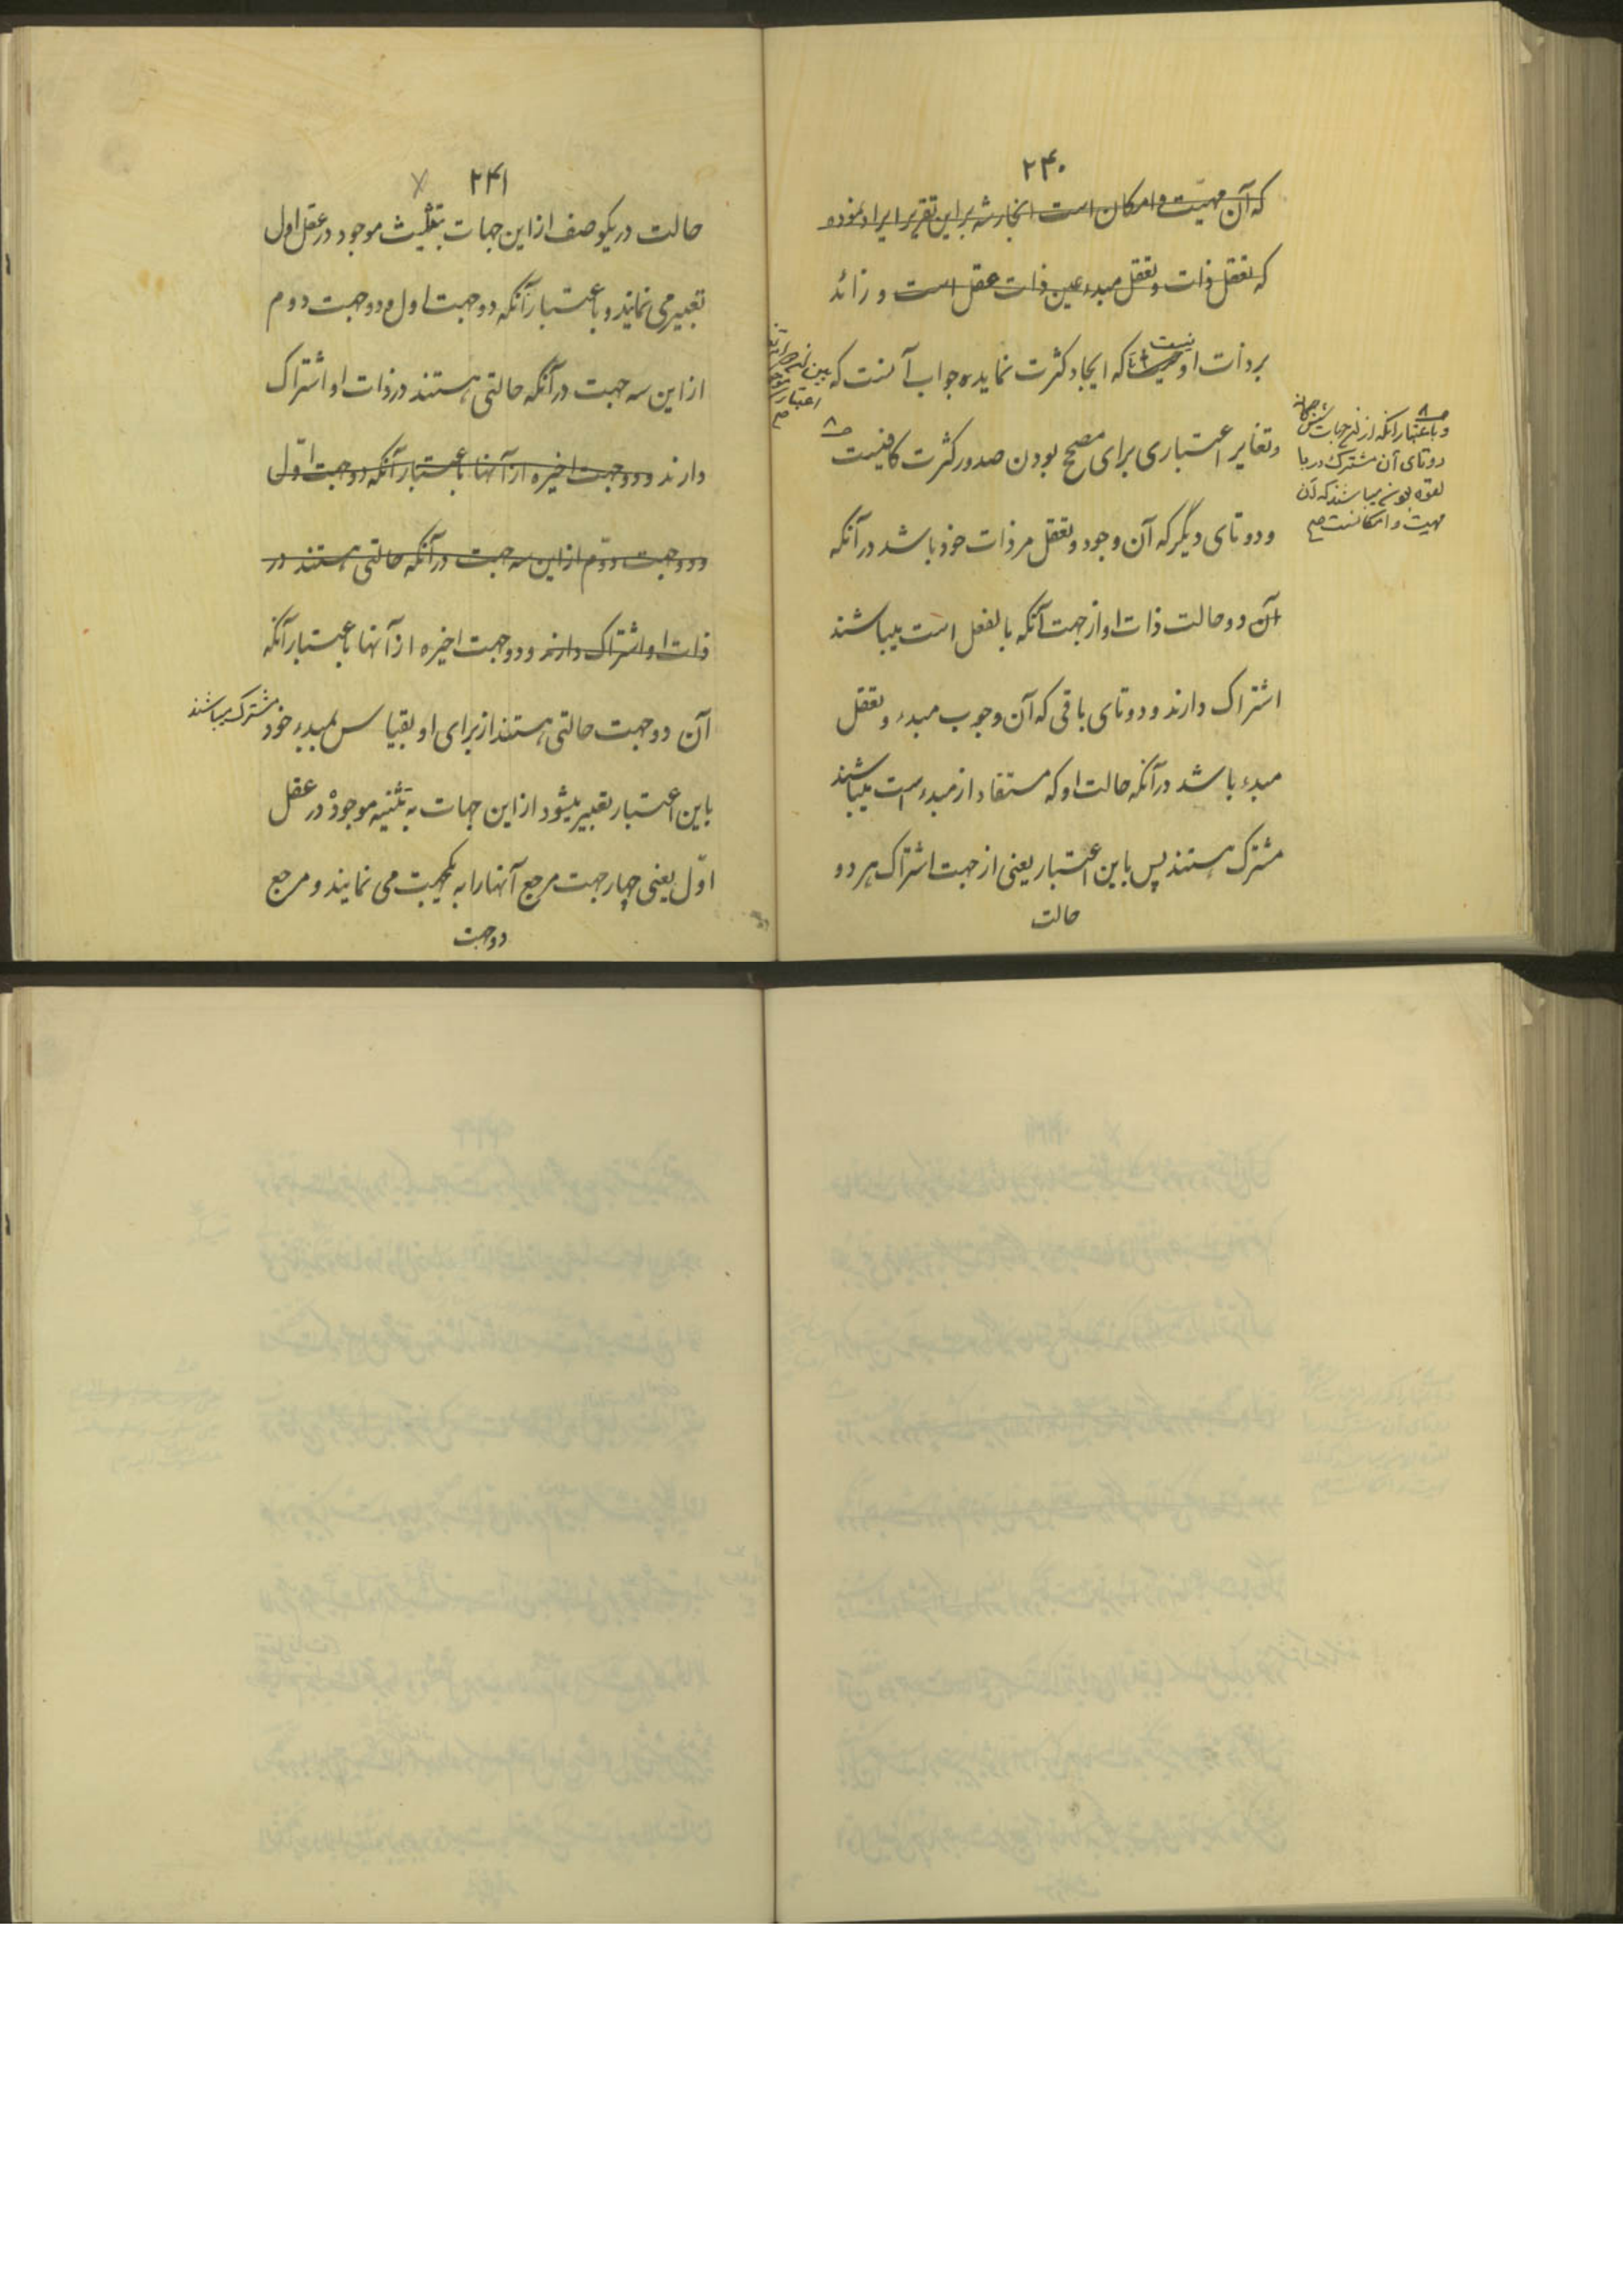 ۲۴۰
که آن مهیت و امکان است انجار شه بر این تقریر ایراد نموده
که تعقل ذات و تعقل مبدء عین ذات عقل است و زائد
بر ذات او نیست تا که ایجاد کثرت نماید جواب آنست که
بین این
اعتبار
صح
و تغایر اعتباری برای مصحح بودن صدور کثرت کافیست
و باعتبار آنکه از این جهات شش گانه
دوتای آن مشترک در ما
بقوه بودن میباشند که آن
مهیت و امکانست صح
و دوتای دیگر که آن وجود و تعقل مر ذات خود باشد در آنکه
آن دو حالت ذات او از جهت آنکه بالفعل است میباشند
اشتراک دارند و دوتای باقی که آن وجوب مبدء و تعقل
مبدء باشد در آنکه حالت او که مستفاد از مبدء است میباشند
مشترک هستند پس باین اعتبار یعنی از جهت اشتراک هر دو
حالت
۲۴۱
حالت در یکوصف از این جهات بتثلیث موجود در عقل اول
تعبیر می نمایند و باعتبار آنکه دو جهت اول و دو جهت دوم
از این سه جهت در آنکه حالتی هستند در ذات او اشتراک
دارند و دو جهت اخیره از آنها باعتبار آنکه دو جهت اول
و دو جهت دوم از این سه جهت در آنکه حالتی هستند در
ذات او اشتراک دارند و دو جهت اخیره از آنها باعتبار آنکه
آن دو جهت حالتی هستند از برای او بقیاس بمبدء خود مشترک میباشند
باین اعتبار تعبیر میشود از این جهات به تثنیه موجود در عقل
اول یعنی چهار جهت مرجع آنها را به یکجهت می نمایند و مرجع
دو جهت